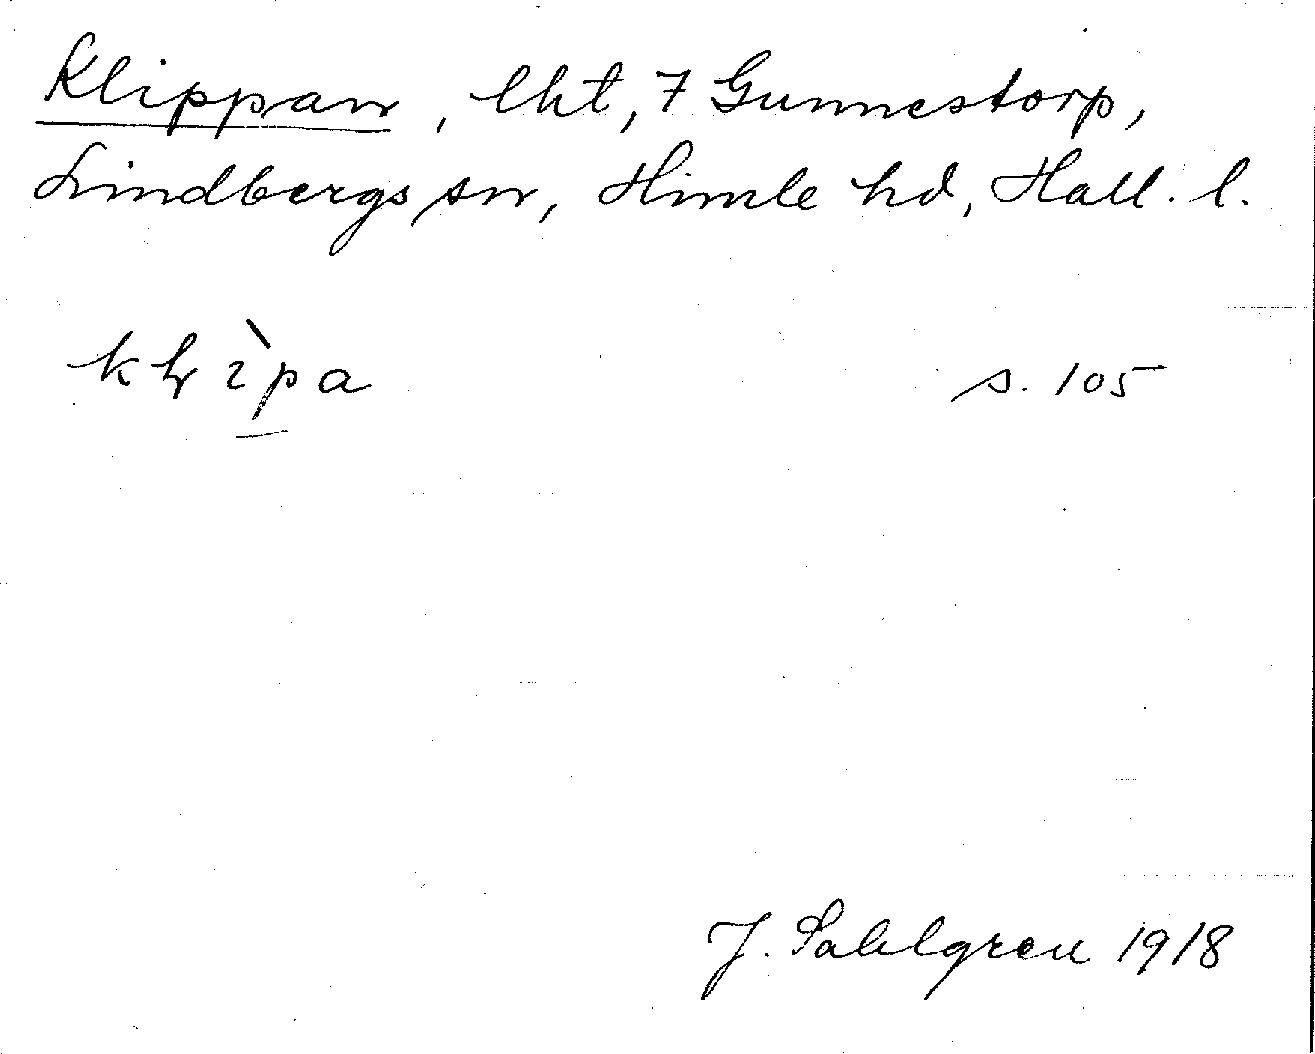 Klippan, lht, 7 Gunnestorp,
Lindbergs sn, Himle hd, Hall. l.
s. 105
J. Sahlgren 1918